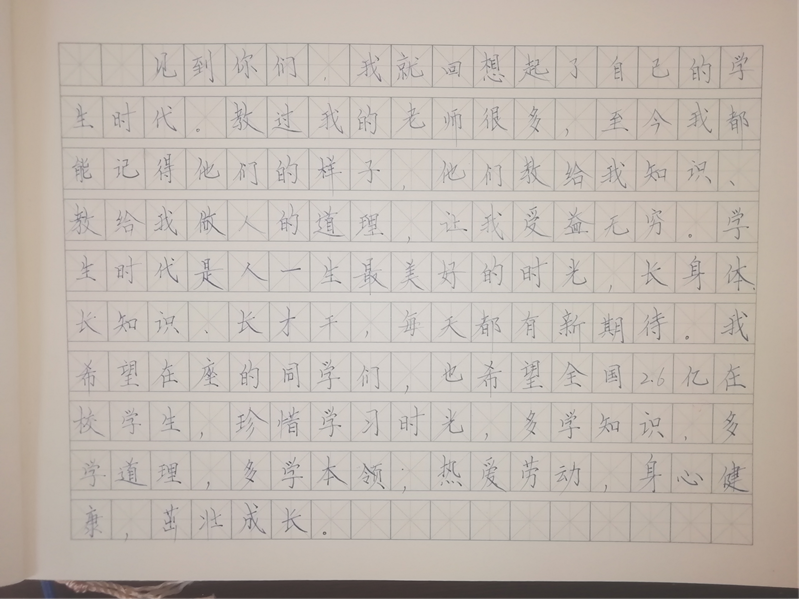 见到你们，我就回想起了自己的学
生时代。教过我的老师很多，至今我都
能记得他们的样子，他们教给我知识、
教给我做人的道理，让我受益无穷。学
生时代是人一生最美好的时光，长身体、
长知识、长才干，每天都有新期待。我
希望在座的同学们，也希望全国2.6亿在
校学生，珍惜学习时光，多学知识，多
学道理，多学本领，热爱劳动，身心健
康，茁壮成长。